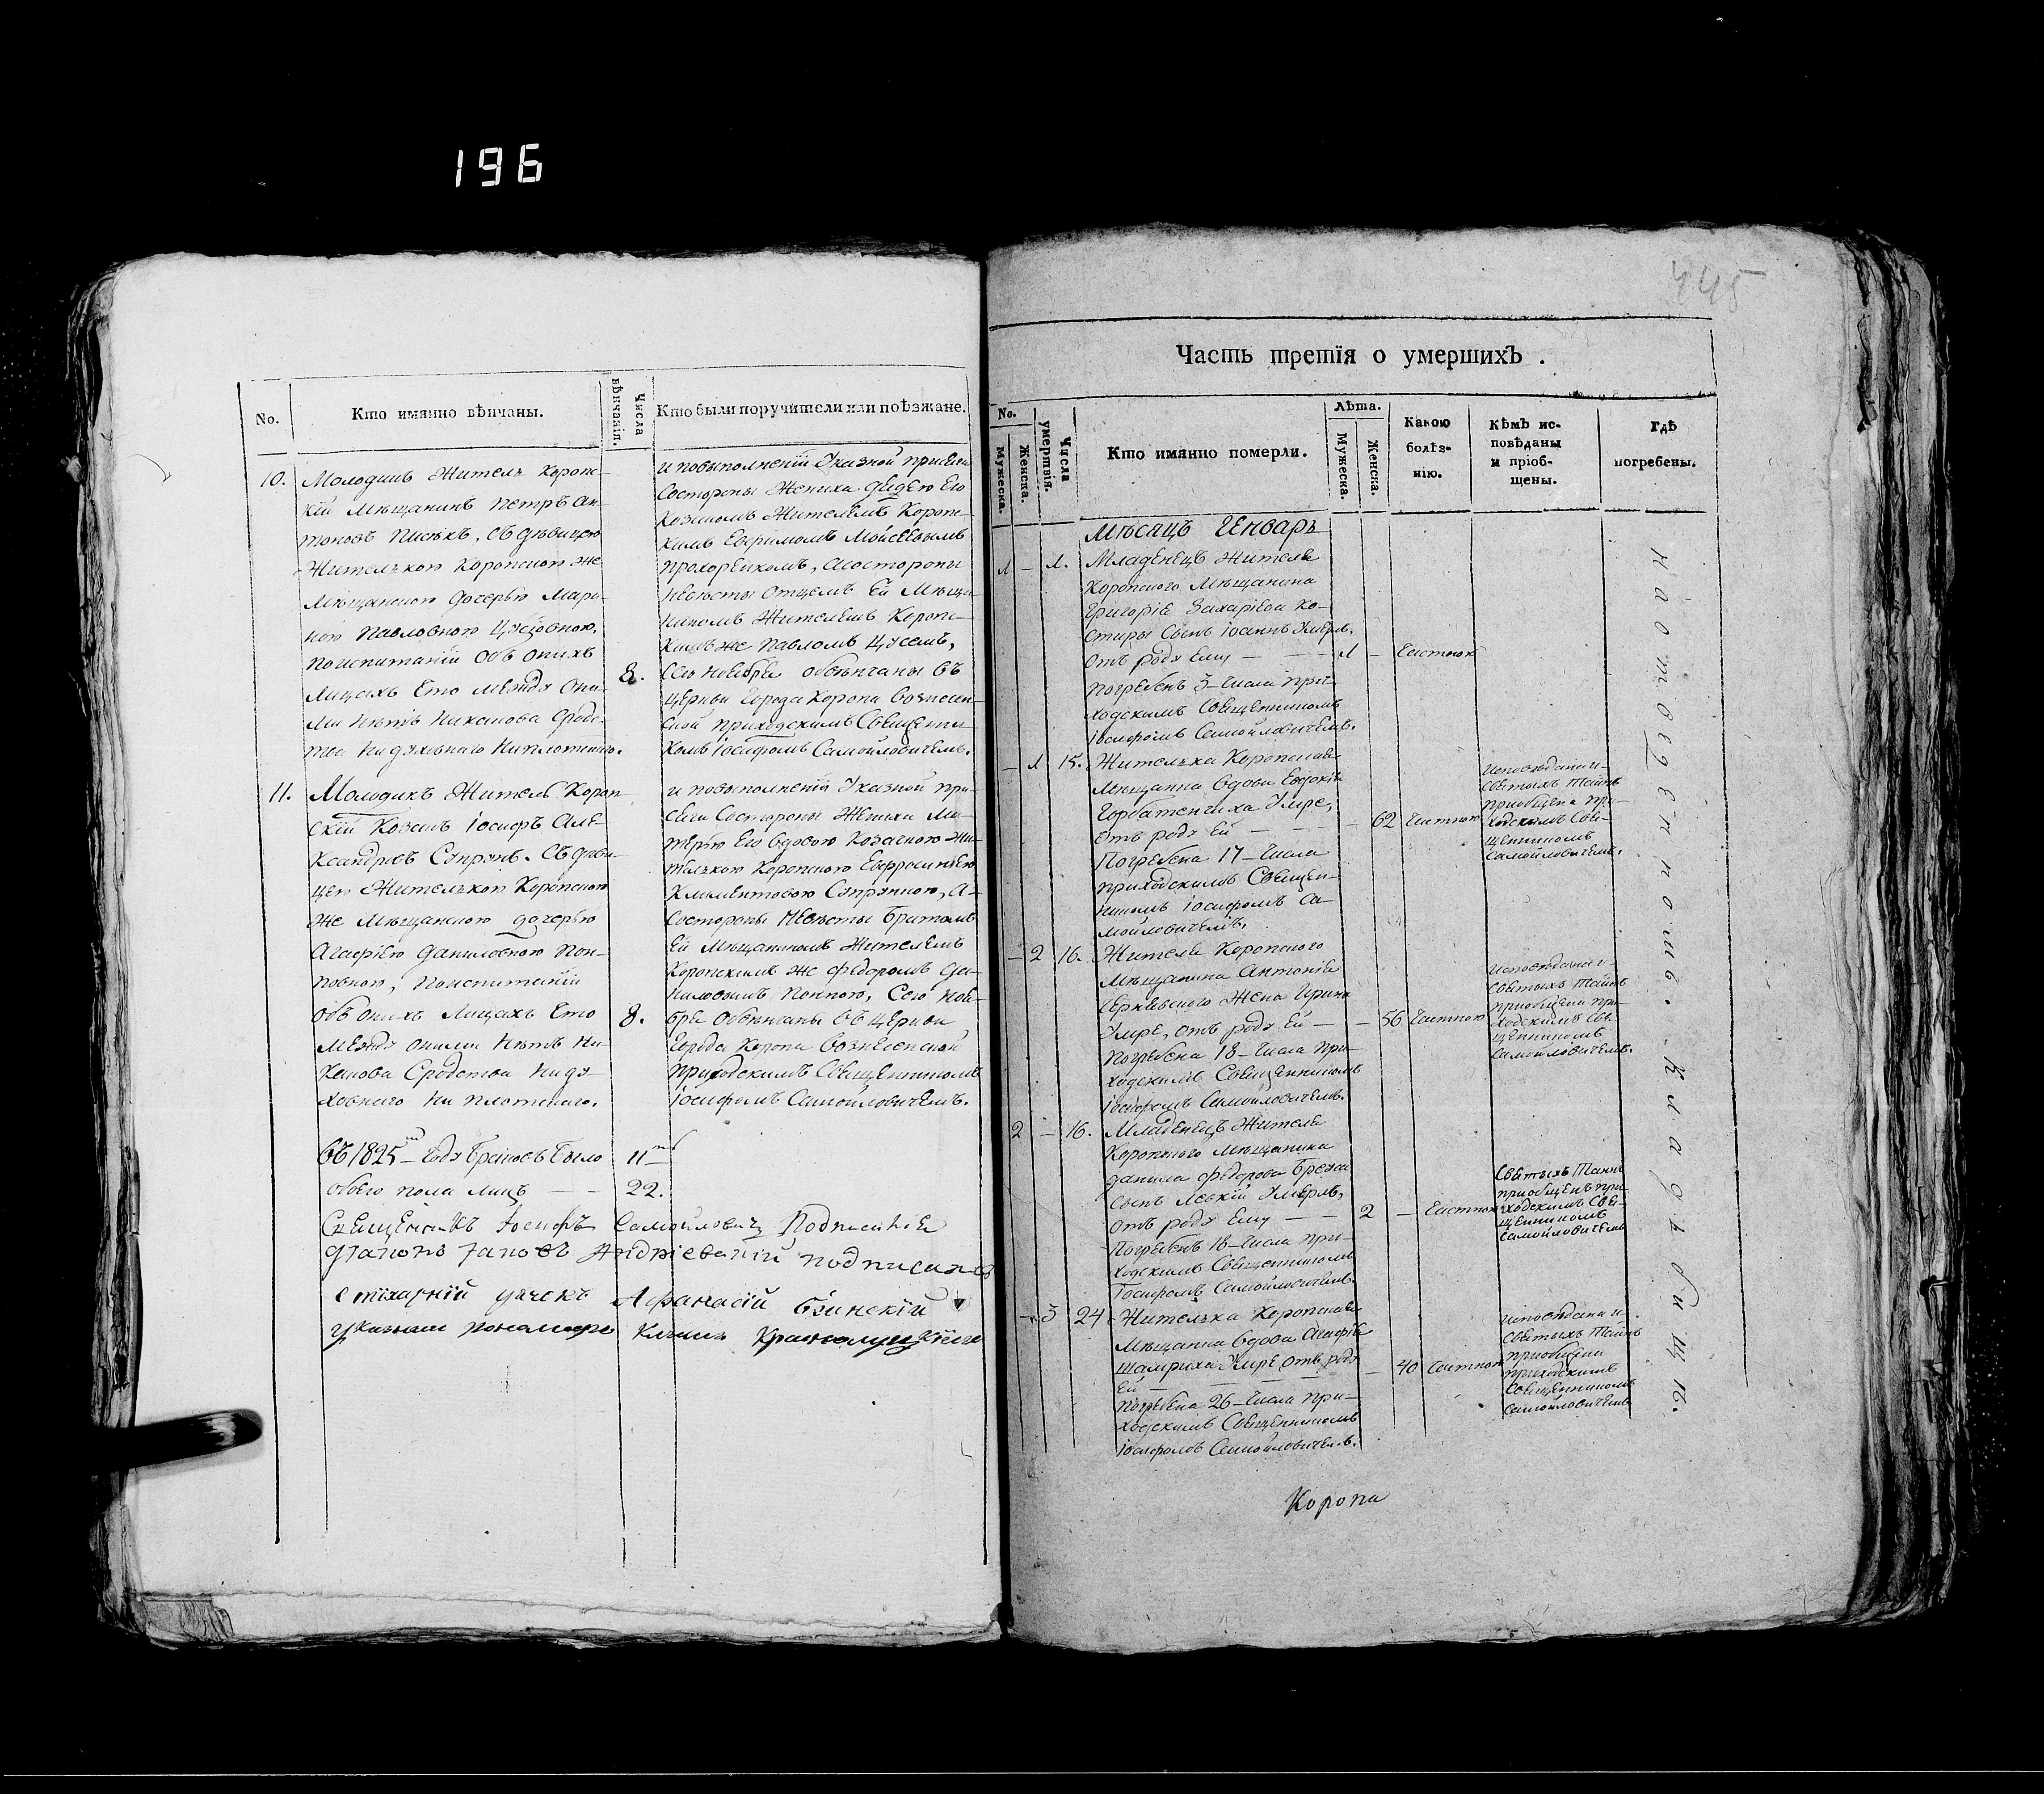 196
445
No.
Кто имянно вѣнчаны.
Числа вѣнчанія.
Кто были поручители или поѣзжане.
10.
Молодикъ Жителъ Коропс-
кій Мѣщанинъ Петръ Ан-
тоновъ, съ дѣвицею
Жителькою Коропскою же
Мѣщанскою дочерью Мари-
ною Павловною
поиспитаніи объ онихъ
Лицахъ Что между они-
ми Нѣтъ Никакова Сродс-
тва Ни духовнаго Ни плотскаго.
8.
и повыполненіи Указной присяги
Состороны Жениха дядею Его
Козакомъ Жителемъ Коропс-
кимъ Евфимомъ Мойсѣевымъ
Прохоренкомъ, Асостороны
Невѣсты Отцемъ Ей Мѣща-
ниномъ Жителемъ Коропс-
кимъ же Павломъ
Сего Ноября обвѣнчаны Въ
Церкви Города Коропа Вознесен-
ской приходскимъ Священни-
комъ Іосифомъ Самойловичемъ.
11.
Молодикъ Житель Короп-
скій Козакъ Іосифъ Але-
ксандровъ Супрунъ. Съ дѣви-
цею Жителькою Коропскою
же Мѣщанскою дочерью
Агафіею Даниловною
поиспитаніи
Объ онихъ Лицахъ Что
Между оними Нѣтъ Ни-
Какова Сродства Ниду-
ховнаго Ни плотскаго.
8.
и повыполненіи Указной при-
сяги Состороны Жениха Ма-
терью Его Вдовою Козачкою Жи-
телькою Коропскою Евфросиніею
Климентовою Супрунною, А-
Состороны Невѣсты Братомъ
Ей Мѣщаниномъ Жителемъ
Коропскимъ же Федоромъ Да-
ниловымъ Сего Ноя-
бря Обвѣнчаны Въ Церкви
Города Коропа Вознесенской
Приходскимъ Священникомъ
Іосифомъ Самойловичемъ.
Въ 1825мъ Году Браковъ Было 11ть
обоего пола лицъ — — 22.
Священникъ Іосифъ Самойловичъ Подписалъ
Андріевскій подписался
стихарній дячекъ Афанасій
указной пономарь
Часть третія о умершихъ .
No.
Мужеска.
Женска.
Числа умертвія.
Кто имянно померли.
Лѣта.
Мужеска.
Женска.
Какою болѣз-
нію.
Кѣмъ ис-
повѣданы
и пріоб-
щены.
Гдѣ
погребены.
Мѣсяцъ Генварь
1 — 1.
Младенецъ Жителя
Коропского Мѣщанина
Григорія Захаріева Ко-
Сынъ Іоаннъ Умеръ.
Отъ роду Ему — — 1 —
Погребенъ 3— Числа при-
ходскимъ Священникомъ
Іосифомъ Самойловичемъ.
— 1 15.
Жителька Коропская
Мѣщанка Вдова Евдокія
Горбатенчиха Умре,
Отъ роду Ей — — — 62
Погребена 17— Числа
приходскимъ Священ-
никомъ Іосифомъ Са-
мойловичемъ.
Исповѣдана и-
Святыхъ Таинъ
приобщена при-
ходскимъ Свя-
щенникомъ
Самойловичемъ.
— 2 16.
Жителя Коропского
Мѣщанина Антонія
Жена Ирина
Умре, Отъ роду Ей — — 56
Погребена 18— Числа при-
ходскимъ Священникомъ
Іосифомъ Самойловичемъ.
Исповѣдана и-
Святыхъ Таинъ
приобщена при-
ходскимъ Свя-
щенникомъ
Самойловичемъ.
2 — 16.
Младенецъ Жителя
Коропского Мѣщанина
Данила Федорова
Сынъ Умеръ,
Отъ роду Ему — — 2 —
Погребенъ 18— Числа при-
ходскимъ Священникомъ
Іосифомъ Самойловичемъ.
Святыхъ Таинъ
приобщенъ при-
ходскимъ Свя-
щенникомъ
Самойловичемъ
— 3 24
Жителька Коропская
Мѣщанка Вдова Агафія
Умре, Отъ роду
Ей — — — — 40
Погребена 26— Числа при-
ходскимъ Священникомъ
Іосифомъ Самойловичемъ.
Исповѣдана и-
Святыхъ Таинъ
приобщена
приходскимъ
Священникомъ
Самойловичемъ
На отведенномъ Кладбищѣ.
Коропа